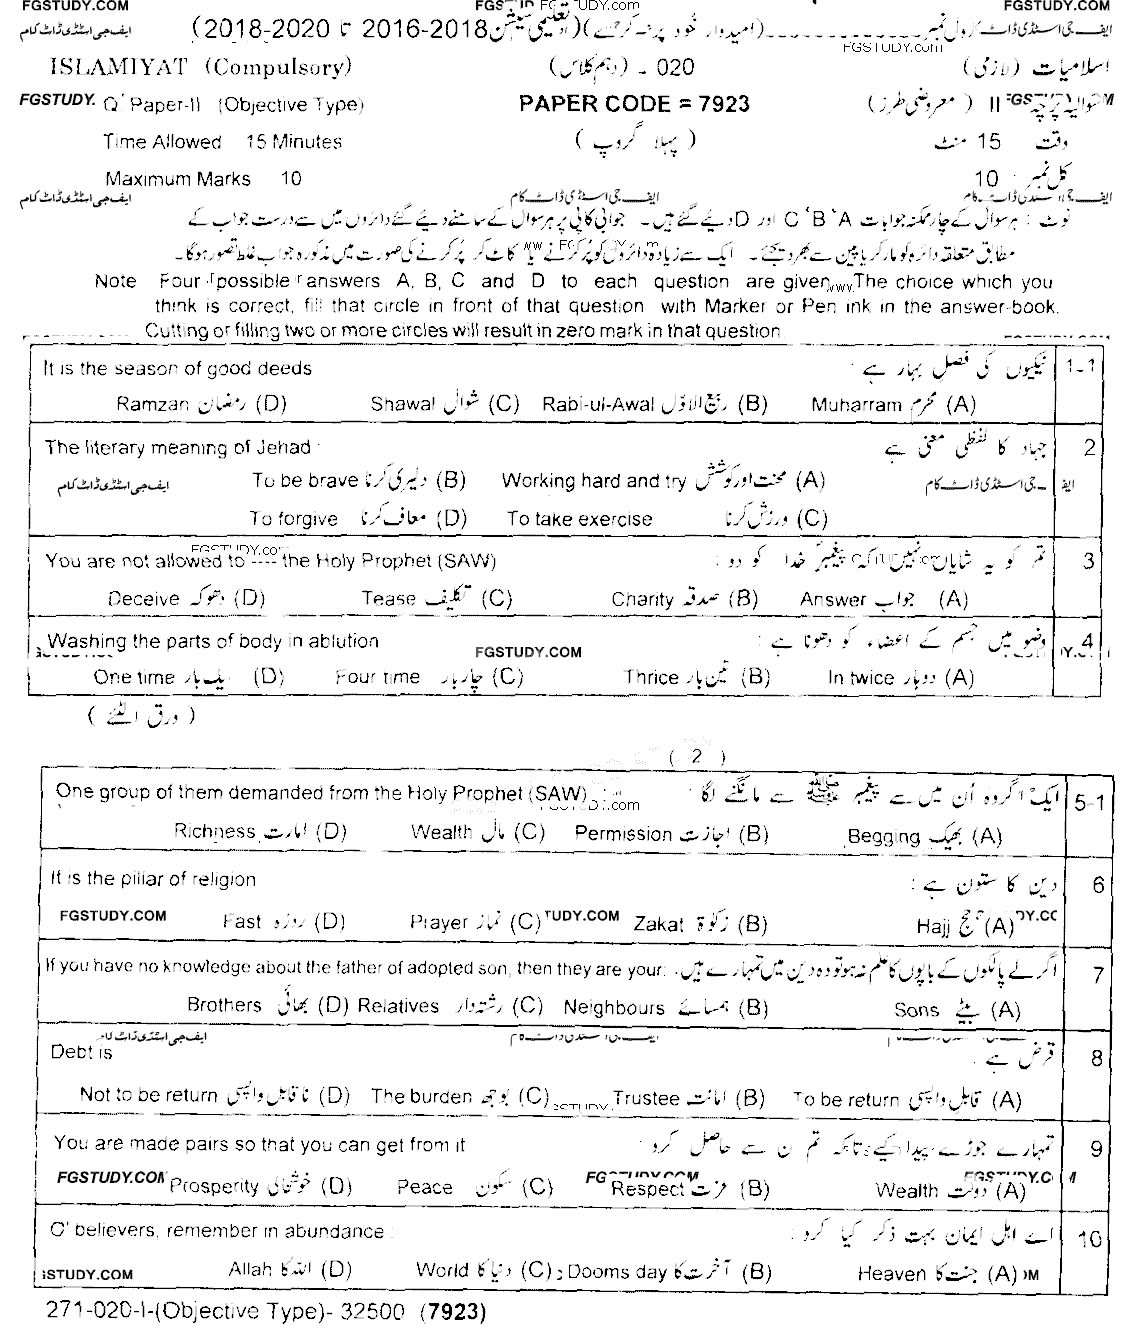 FGSTUDY.COM FGSTUDY.com FGSTUDY.COM
ایف جی اسٹڈی ڈاٹ کام رول نمبر (امیدوار خود پر کرے) (تعلیمی سیشن 2018-2016 تا 2020-2018) ایف جی اسٹڈی ڈاٹ کام
FGSTUDY.com
ISLAMIYAT (Compulsory) 020 - (دہم کلاس) اسلامیات (لازمی)
FGSTUDY. Q Paper-II (Objective Type) PAPER CODE = 7923 سوالیہ پرچہ II (معروضی طرز)
Time Allowed 15 Minutes (پہلا گروپ) وقت 15 منٹ
Maximum Marks 10 کل نمبر 10
ایف جی اسٹڈی ڈاٹ کام ایف جی اسٹڈی ڈاٹ کام ایف جی اسٹڈی ڈاٹ کام
نوٹ : ہر سوال کے چار ممکنہ جوابات A، B، C اور D دیئے گئے ہیں۔ جوابی کاپی پر ہر سوال کے سامنے دیئے گئے دائروں میں سے درست جواب کے
مطابق متعلقہ دائرہ کو مارکر یا پین سے بھر دیجئے۔ ایک سے زیادہ دائروں کو پُر کرنے یا کاٹ کر پُر کرنے کی صورت میں مذکورہ جواب غلط تصور ہوگا۔
Note Four possible answers A, B, C and D to each question are given. The choice which you
think is correct, fill that circle in front of that question with Marker or Pen ink in the answer-book.
Cutting or filling two or more circles will result in zero mark in that question
It is the season of good deeds نیکیوں کی فصل بہار ہے : 1-1
Ramzan رمضان (D) Shawal شوال (C) Rabi-ul-Awal ربیع الاوّل (B) Muharram محرم (A)
The literary meaning of Jehad جہاد کا لفظی معنی ہے 2
To be brave دلیری کرنا (B) Working hard and try محنت اور کوشش (A)
ایف جی اسٹڈی ڈاٹ کام ایف جی اسٹڈی ڈاٹ کام
To forgive معاف کرنا (D) To take exercise ورزش کرنا (C)
FGSTUDY.com
You are not allowed to ---- the Holy Prophet (SAW) تم کو یہ شایاں نہیں کہ پیغمبر خدا کو دو : 3
Deceive دھوکہ (D) Tease تکلیف (C) Charity صدقہ (B) Answer جواب (A)
Washing the parts of body in ablution وضو میں جسم کے اعضاء کو دھونا ہے : 4
FGSTUDY.COM
One time ایک بار (D) Four time چار بار (C) Thrice تین بار (B) In twice دو بار (A)
(ورق الٹئے)
(2)
One group of them demanded from the Holy Prophet (SAW) ایک گروہ اُن میں سے پیغمبر ﷺ سے مانگنے لگا : 5-1
Richness امارت (D) Wealth مال (C) Permission اجازت (B) Begging بھیک (A)
It is the pillar of religion دین کا ستون ہے : 6
FGSTUDY.COM Fast روزہ (D) Prayer نماز (C) TUDY.COM Zakat زکوٰۃ (B) Hajj حج (A)
If you have no knowledge about the father of adopted son, then they are your: اگر لے پالکوں کے باپوں کا علم نہ ہو تو وہ دین میں تمہارے ہیں 7
Brothers بھائی (D) Relatives رشتہ دار (C) Neighbours ہمسائے (B) Sons بیٹے (A)
ایف جی اسٹڈی ڈاٹ کام
Debt is قرض ہے : 8
Not to be return ناقابل واپسی (D) The burden بوجھ (C) Trustee امانت (B) To be return قابل واپسی (A)
You are made pairs so that you can get from it تمہارے جوڑے پیدا کیے تاکہ تم ن سے حاصل کرو : 9
FGSTUDY.COM Prosperity خوشحالی (D) Peace سکون (C) Respect عزت (B) Wealth دولت (A)
O' believers, remember in abundance : اے اہل ایمان بہت ذکر کیا کرو : 10
GSTUDY.COM Allah اللہ کا (D) World دنیا کا (C) Dooms day آخرت کا (B) Heaven جنت کا (A)
271-020-I-(Objective Type)- 32500 (7923)